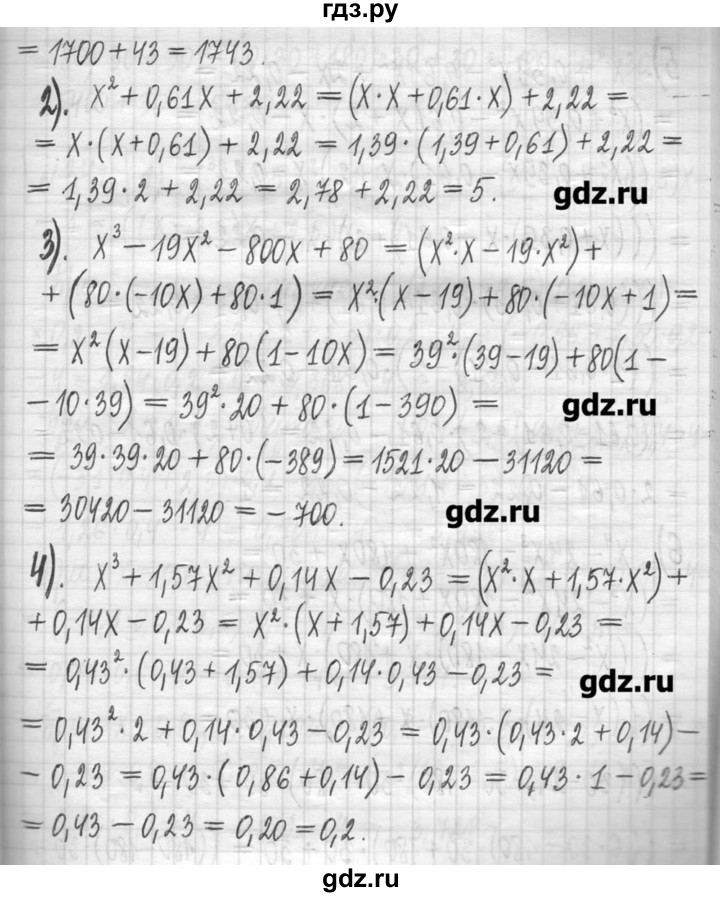 гдз.ру
= 1700 + 43 = 1743.
2). x² + 0,61x + 2,22 = (x·x + 0,61·x) + 2,22 =
= x·(x + 0,61) + 2,22 = 1,39·(1,39 + 0,61) + 2,22 =
= 1,39·2 + 2,22 = 2,78 + 2,22 = 5. gdz.ru
3). x³ − 19x² − 800x + 80 = (x²·x − 19·x²) +
+ (80·(−10x) + 80·1) = x²·(x − 19) + 80·(−10x + 1) =
= x²(x − 19) + 80(1 − 10x) = 39²·(39 − 19) + 80(1 −
− 10·39) = 39²·20 + 80·(1 − 390) = gdz.ru
= 39·39·20 + 80·(−389) = 1521·20 − 31120 =
= 30420 − 31120 = − 700. gdz.ru
4). x³ + 1,57x² + 0,14x − 0,23 = (x²·x + 1,57·x²) +
+ 0,14x − 0,23 = x²·(x + 1,57) + 0,14x − 0,23 =
= 0,43²·(0,43 + 1,57) + 0,14·0,43 − 0,23 = gdz.ru
= 0,43²·2 + 0,14·0,43 − 0,23 = 0,43·(0,43·2 + 0,14) −
− 0,23 = 0,43·(0,86 + 0,14) − 0,23 = 0,43·1 − 0,23 =
= 0,43 − 0,23 = 0,20 = 0,2.
gdz.ru